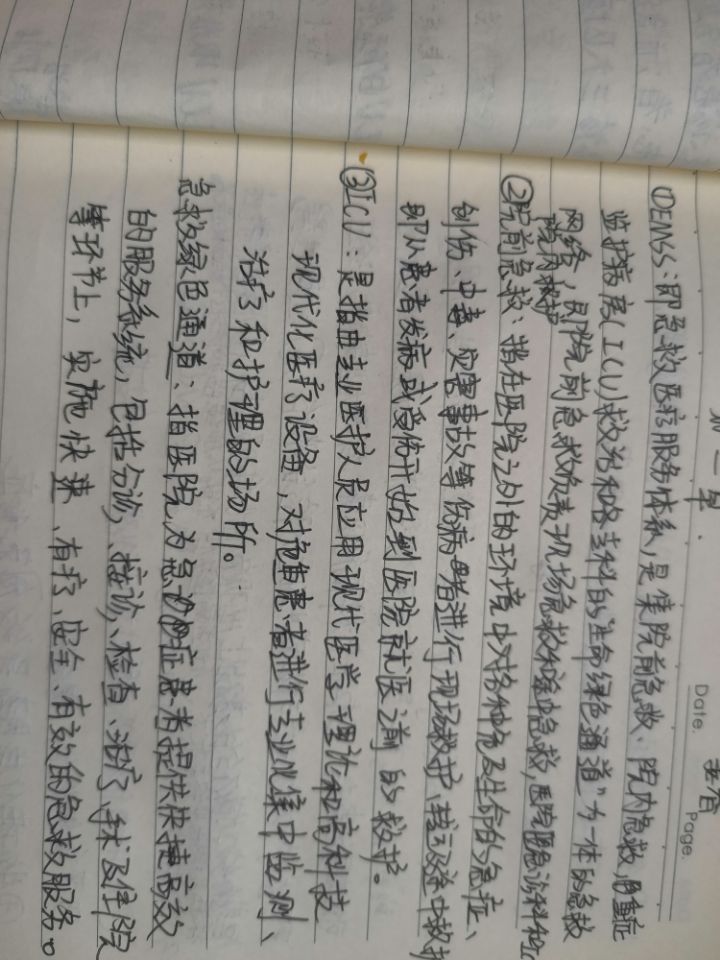 第一章.
Date.
Page.
①EMSS：即急救医疗服务体系，是集院前急救、院内急救，重症
监护病房(ICU)救治和各专科的"生命绿色通道"为一体的急救
网络，即院前急救负责现场急救和途中急救，医院急诊科和ICU
院内救护
②院前急救：指在医院之外的环境中对各种危及生命的急症、
创伤、中毒、灾害事故等伤病者进行现场救护、转运及途中救护
即从患者发病或受伤开始到医院就医之前的救护。
③ICU：是指由专业医护人员应用现代医学理论和高科技
现代化医疗设备，对危重患者进行专业化集中监测、
治疗和护理的场所。
急救绿色通道：指医院为急危重症患者提供快捷高效
的服务系统，包括分诊、接诊、检查、治疗、手术及住院
等环节上，实施快速、有序、安全、有效的急救服务。